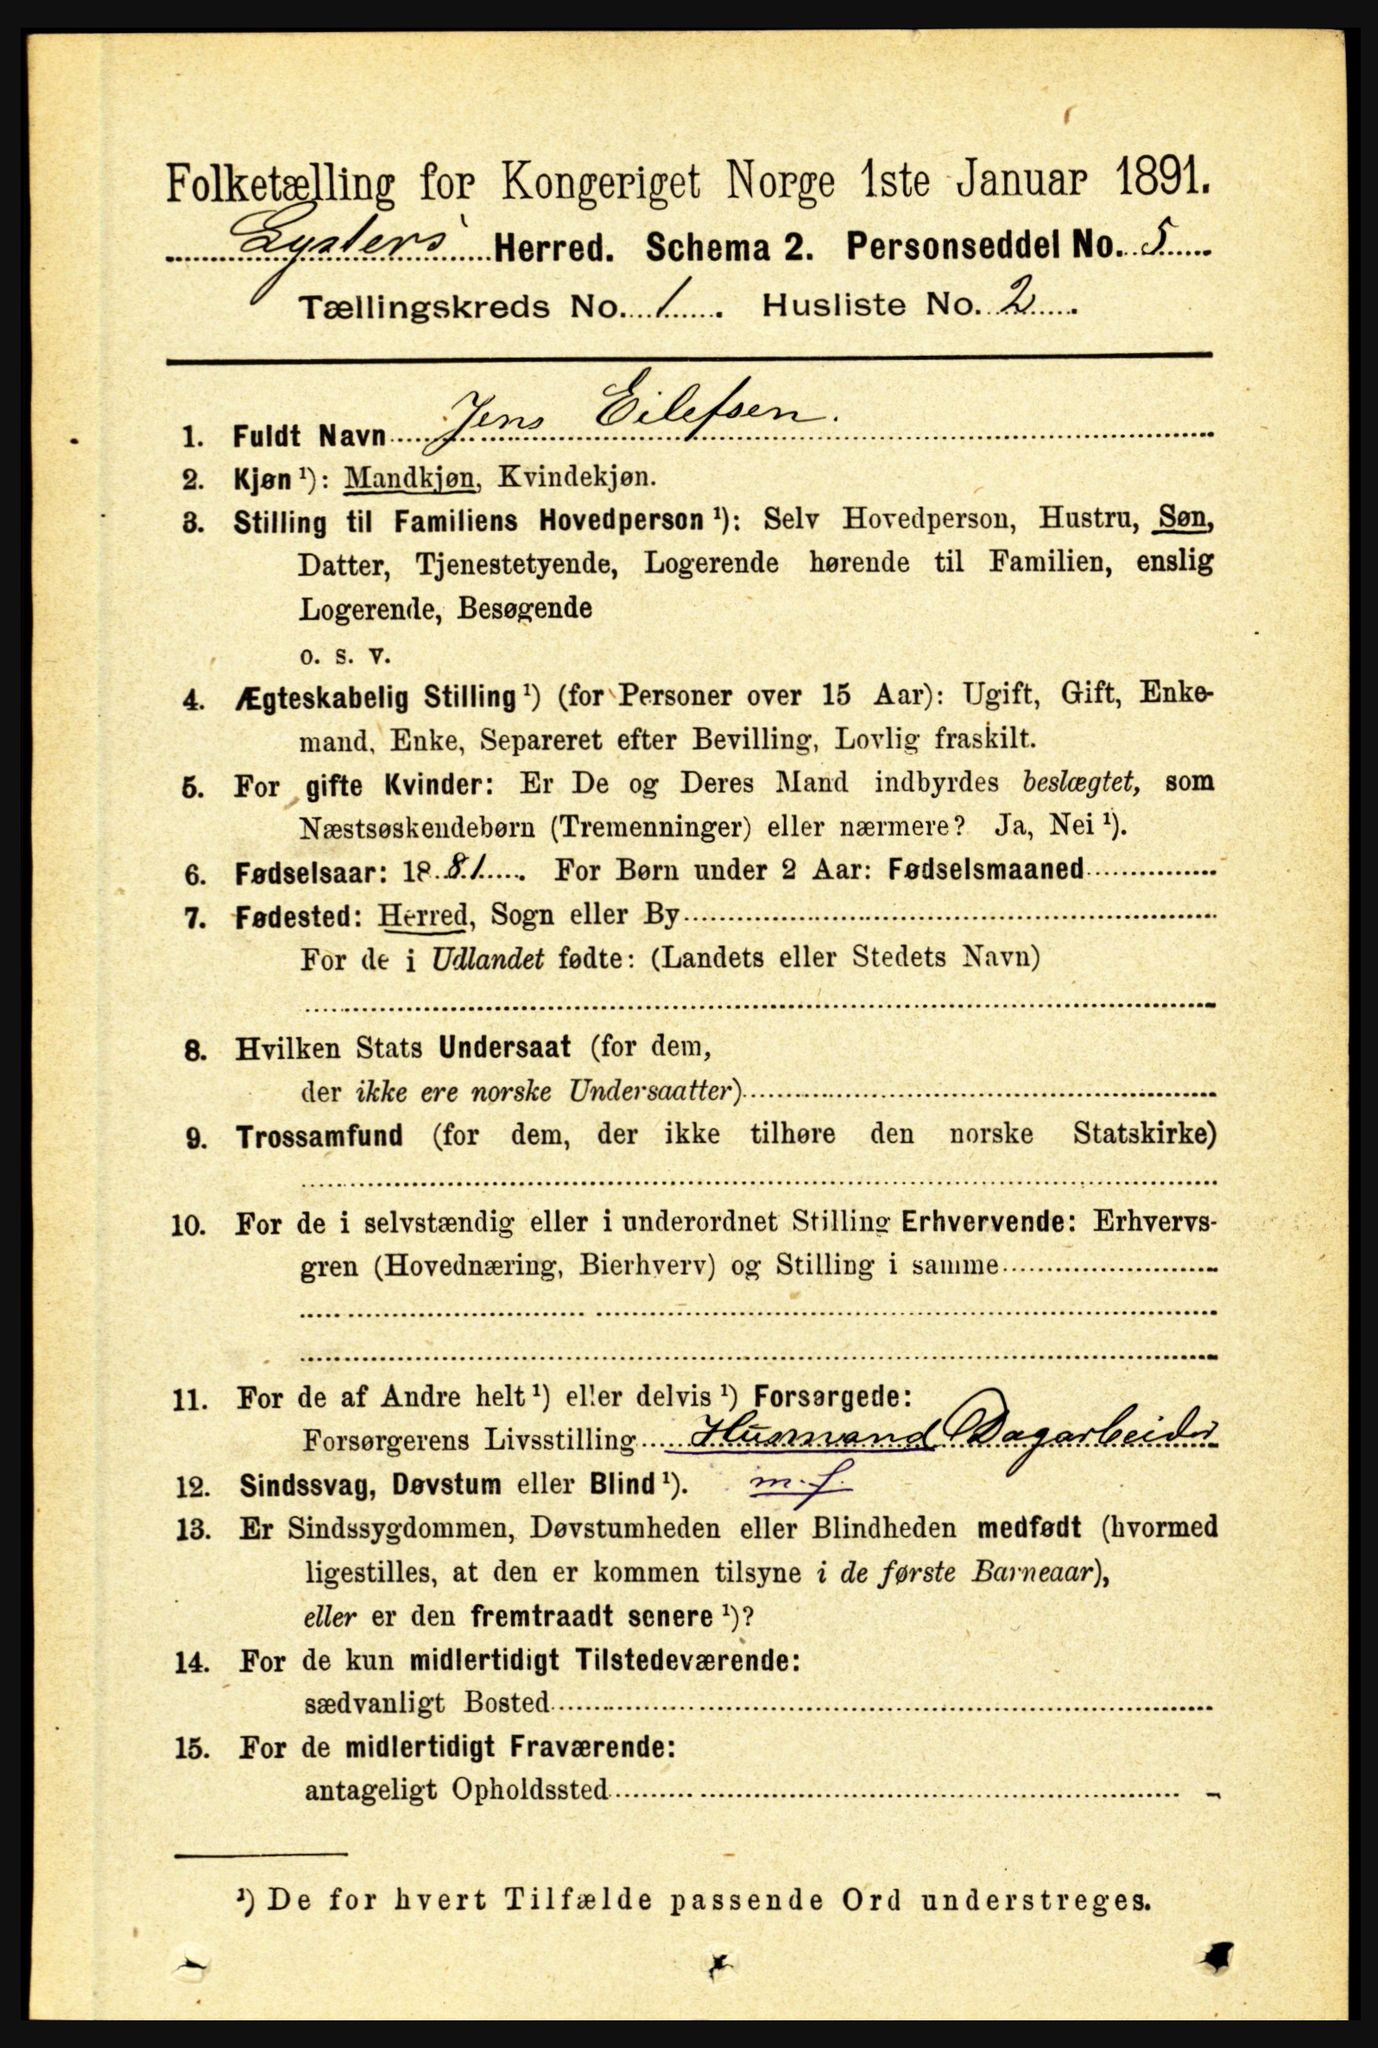 Folketælling for Kongeriget Norge 1ste Januar 1891.
Lysters Herred. Schema 2. Personseddel No. 5
Tællingskreds No. 1. Husliste No. 2.
1. Fuldt Navn Jens Eilefsen.
2. Kjøn ¹): Mandkjøn, Kvindekjøn.
3. Stilling til Familiens Hovedperson ¹): Selv Hovedperson, Hustru, Søn,
Datter, Tjenestetyende, Logerende hørende til Familien, enslig
Logerende, Besøgende
o. s. v.
4. Ægteskabelig Stilling ¹) (for Personer over 15 Aar): Ugift, Gift, Enke-
mand, Enke, Separeret efter Bevilling, Lovlig fraskilt.
5. For gifte Kvinder: Er De og Deres Mand indbyrdes beslægtet, som
Næstsøskendebørn (Tremenninger) eller nærmere? Ja, Nei ¹).
6. Fødselsaar: 1881. For Børn under 2 Aar: Fødselsmaaned
7. Fødested: Herred, Sogn eller By
For de i Udlandet fødte: (Landets eller Stedets Navn)
8. Hvilken Stats Undersaat (for dem,
der ikke ere norske Undersaatter)
9. Trossamfund (for dem, der ikke tilhøre den norske Statskirke)
10. For de i selvstændig eller i underordnet Stilling Erhvervende: Erhvervs-
gren (Hovednæring, Bierhverv) og Stilling i samme
11. For de af Andre helt ¹) eller delvis ¹) Forsørgede:
Forsørgerens Livsstilling Husmand Dagarbeider
12. Sindssvag, Døvstum eller Blind ¹). m. f.
13. Er Sindssygdommen, Døvstumheden eller Blindheden medfødt (hvormed
ligestilles, at den er kommen tilsyne i de første Barneaar),
eller er den fremtraadt senere ¹)?
14. For de kun midlertidigt Tilstedeværende:
sædvanligt Bosted
15. For de midlertidigt Fraværende:
antageligt Opholdssted
¹) De for hvert Tilfælde passende Ord understreges.